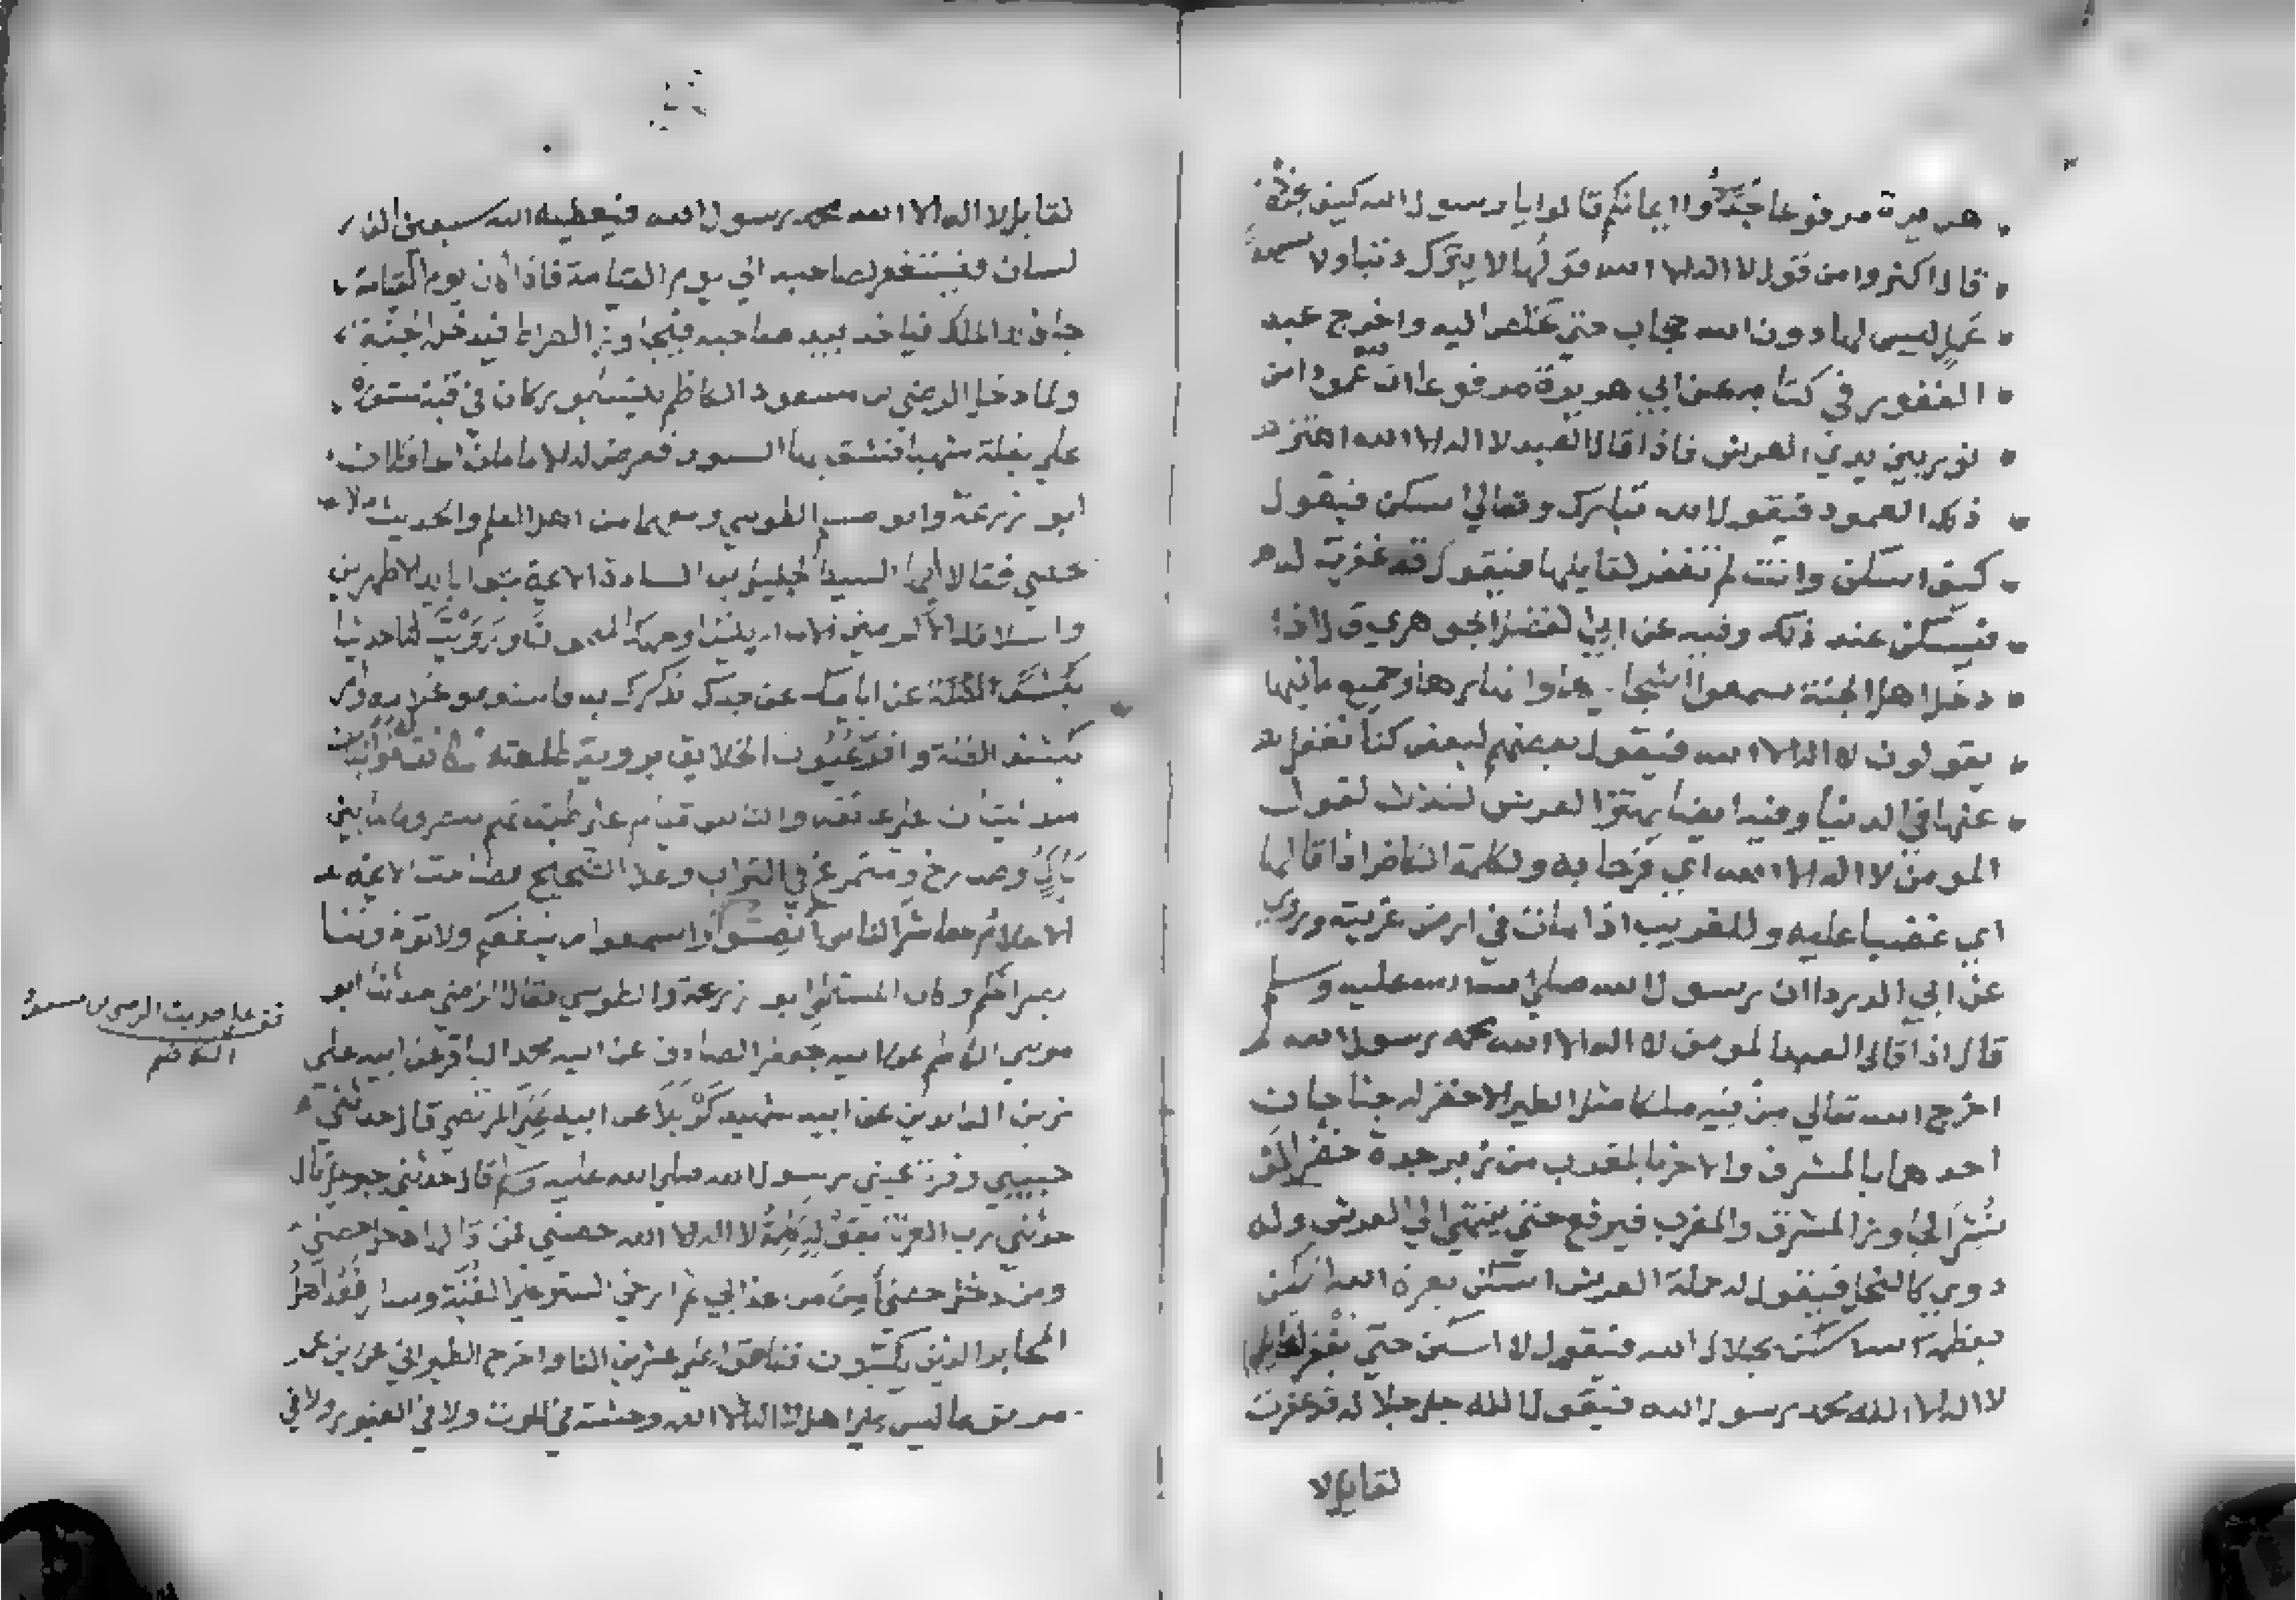 هريرة مرفوعا جددوا ايمانكم قالوا يا رسول الله كيف نجدد
قال اكثروا من قول لا اله الا الله قولها لا يترك ذنبا ولا
عمل ليس لها دون الله حجاب حتى تخلص اليه واخرج عبد
الغفور في كتابه عن ابي هريرة مرفوعا ان عمودا من
نور بين يدي العرش فاذا قال العبد لا اله الا الله اهتز
ذلك العمود فيقول الله تبارك وتعالى اسكن فيقول
كيف اسكن وانت لم تغفر لقايلها فيقول قد غفرت له
فيسكن عند ذلك وفيه عن ابي الفضل الجوهري قال اذا
دخل اهل الجنة سمعوا اشجارها وانهارها وجميع ما فيها
يقولون لا اله الا الله فيقول بعضهم لبعض كنا نغفل
عنها في الدنيا وفيه ايضا يهتز العرش لثلاث لقول
المومن لا اله الا الله اي فرحا به ولكلمة الكافر اذا قالها
اي غضبا عليه وللغريب اذا مات في ارض غريبة وروي
عن ابي الدردا ان رسول الله صلى الله عليه وسلم
قال اذا قال العبد المومن لا اله الا الله محمد رسول الله
اخرج الله تعالى من فيه ملكا مثل الطير الاخضر له جناحان
احدهما بالمشرق والاخر بالمغرب من زبرجدة خضرا
المشرق والمغرب فيرفع حتى ينتهي الى العرش وله
دوي كالنحل فيقول له حملة العرش اسكن بعزة الله اسكن
بعظمة الله اسكن بجلال الله فيقول لا اسكن حتى يغفر لقايل
لا اله الا الله محمد رسول الله فيقول الله جل جلاله قد غفرت
لقايل لا
لقايل لا اله الا الله محمد رسول الله فيعطيه الله سبعين الف
لسان فيستغفر لصاحبه الى يوم القيامة فاذا كان يوم القيامة
جا ذلك الملك فياخذ بيد صاحبه فيجاوز الصراط فيدخل الجنة
ولما دخل الرضي بن مسعود الكاظم نيسابور كان في قبة
على بغلة شهبا فشق بها السوق فعرض له الامامان الحافظان
ابو زرعة وابو مسلم الطوسي ومعهما من اهل العلم والحديث
فقالا ايها السيد الجليل بن السادة الايمة بحق ابايك الاطهرين
واسلافك الاكرمين الا ما اريتنا وجهك الميمون ورويت لنا حديثا
عن ابايك عن جدك نذكرك به
القبة واقر عيون الخلايق بروية طلعته
والناس قيام على طبقاتهم ما بين
باك وصارخ ومتمرغ في التراب وعلا الضجيج فصاحت الايمة
الاعلام معاشر الناس انصتوا واسمعوا ما ينفعكم ولا توذونا
بصراخكم وكان المستملي ابو زرعة والطوسي فقال الرضي حدثنا ابو
موسى الكاظم عن ابيه جعفر الصادق عن ابيه محمد الباقر عن ابيه علي
زين العابدين عن ابيه شهيد كربلا عن ابيه علي المرتضي قال حدثني
حبيبي وقرة عيني رسول الله صلى الله عليه وسلم قال حدثني جبريل قال
حدثني رب العزة يقول كلمة لا اله الا الله حصني فمن قالها دخل حصني
ومن دخل حصني امن من عذابي ثم ارخى الستر على القبة وسار فعد اهل
المحابر الذين يكتبون فزادوا على عشرين الفا واخرج الطبراني عن ابن عمر
مرفوعا ليس على اهل لا اله الا الله وحشة في الموت ولا في القبور ولا في
قف على حديث الرضي بن مسعود
الكاظم